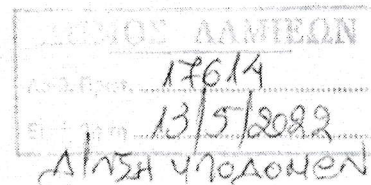 ΔΗΜΟΣ ΛΑΜΙΕΩΝ
Αριθ. Πρωτ. 17614
13/5/2022
Δ/ΝΣΗ ΥΠΟΔΟΜΩΝ